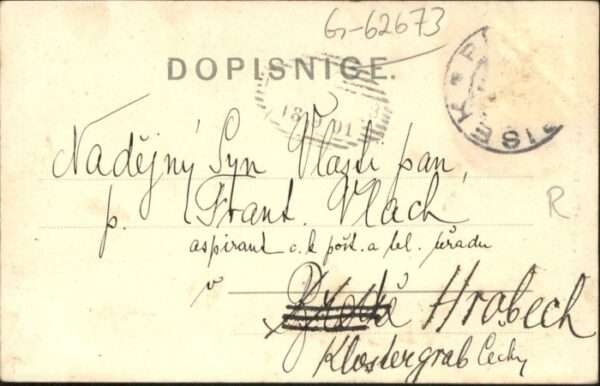 G-62673
DOPISNICE.
PISEK
18 01
Nadějný Syn Vlasti pan,
p. Frant. Vlach
aspirant c. k. pošt. a tel. úřadu
v
Hrobech
Klostergrab Čechy
R